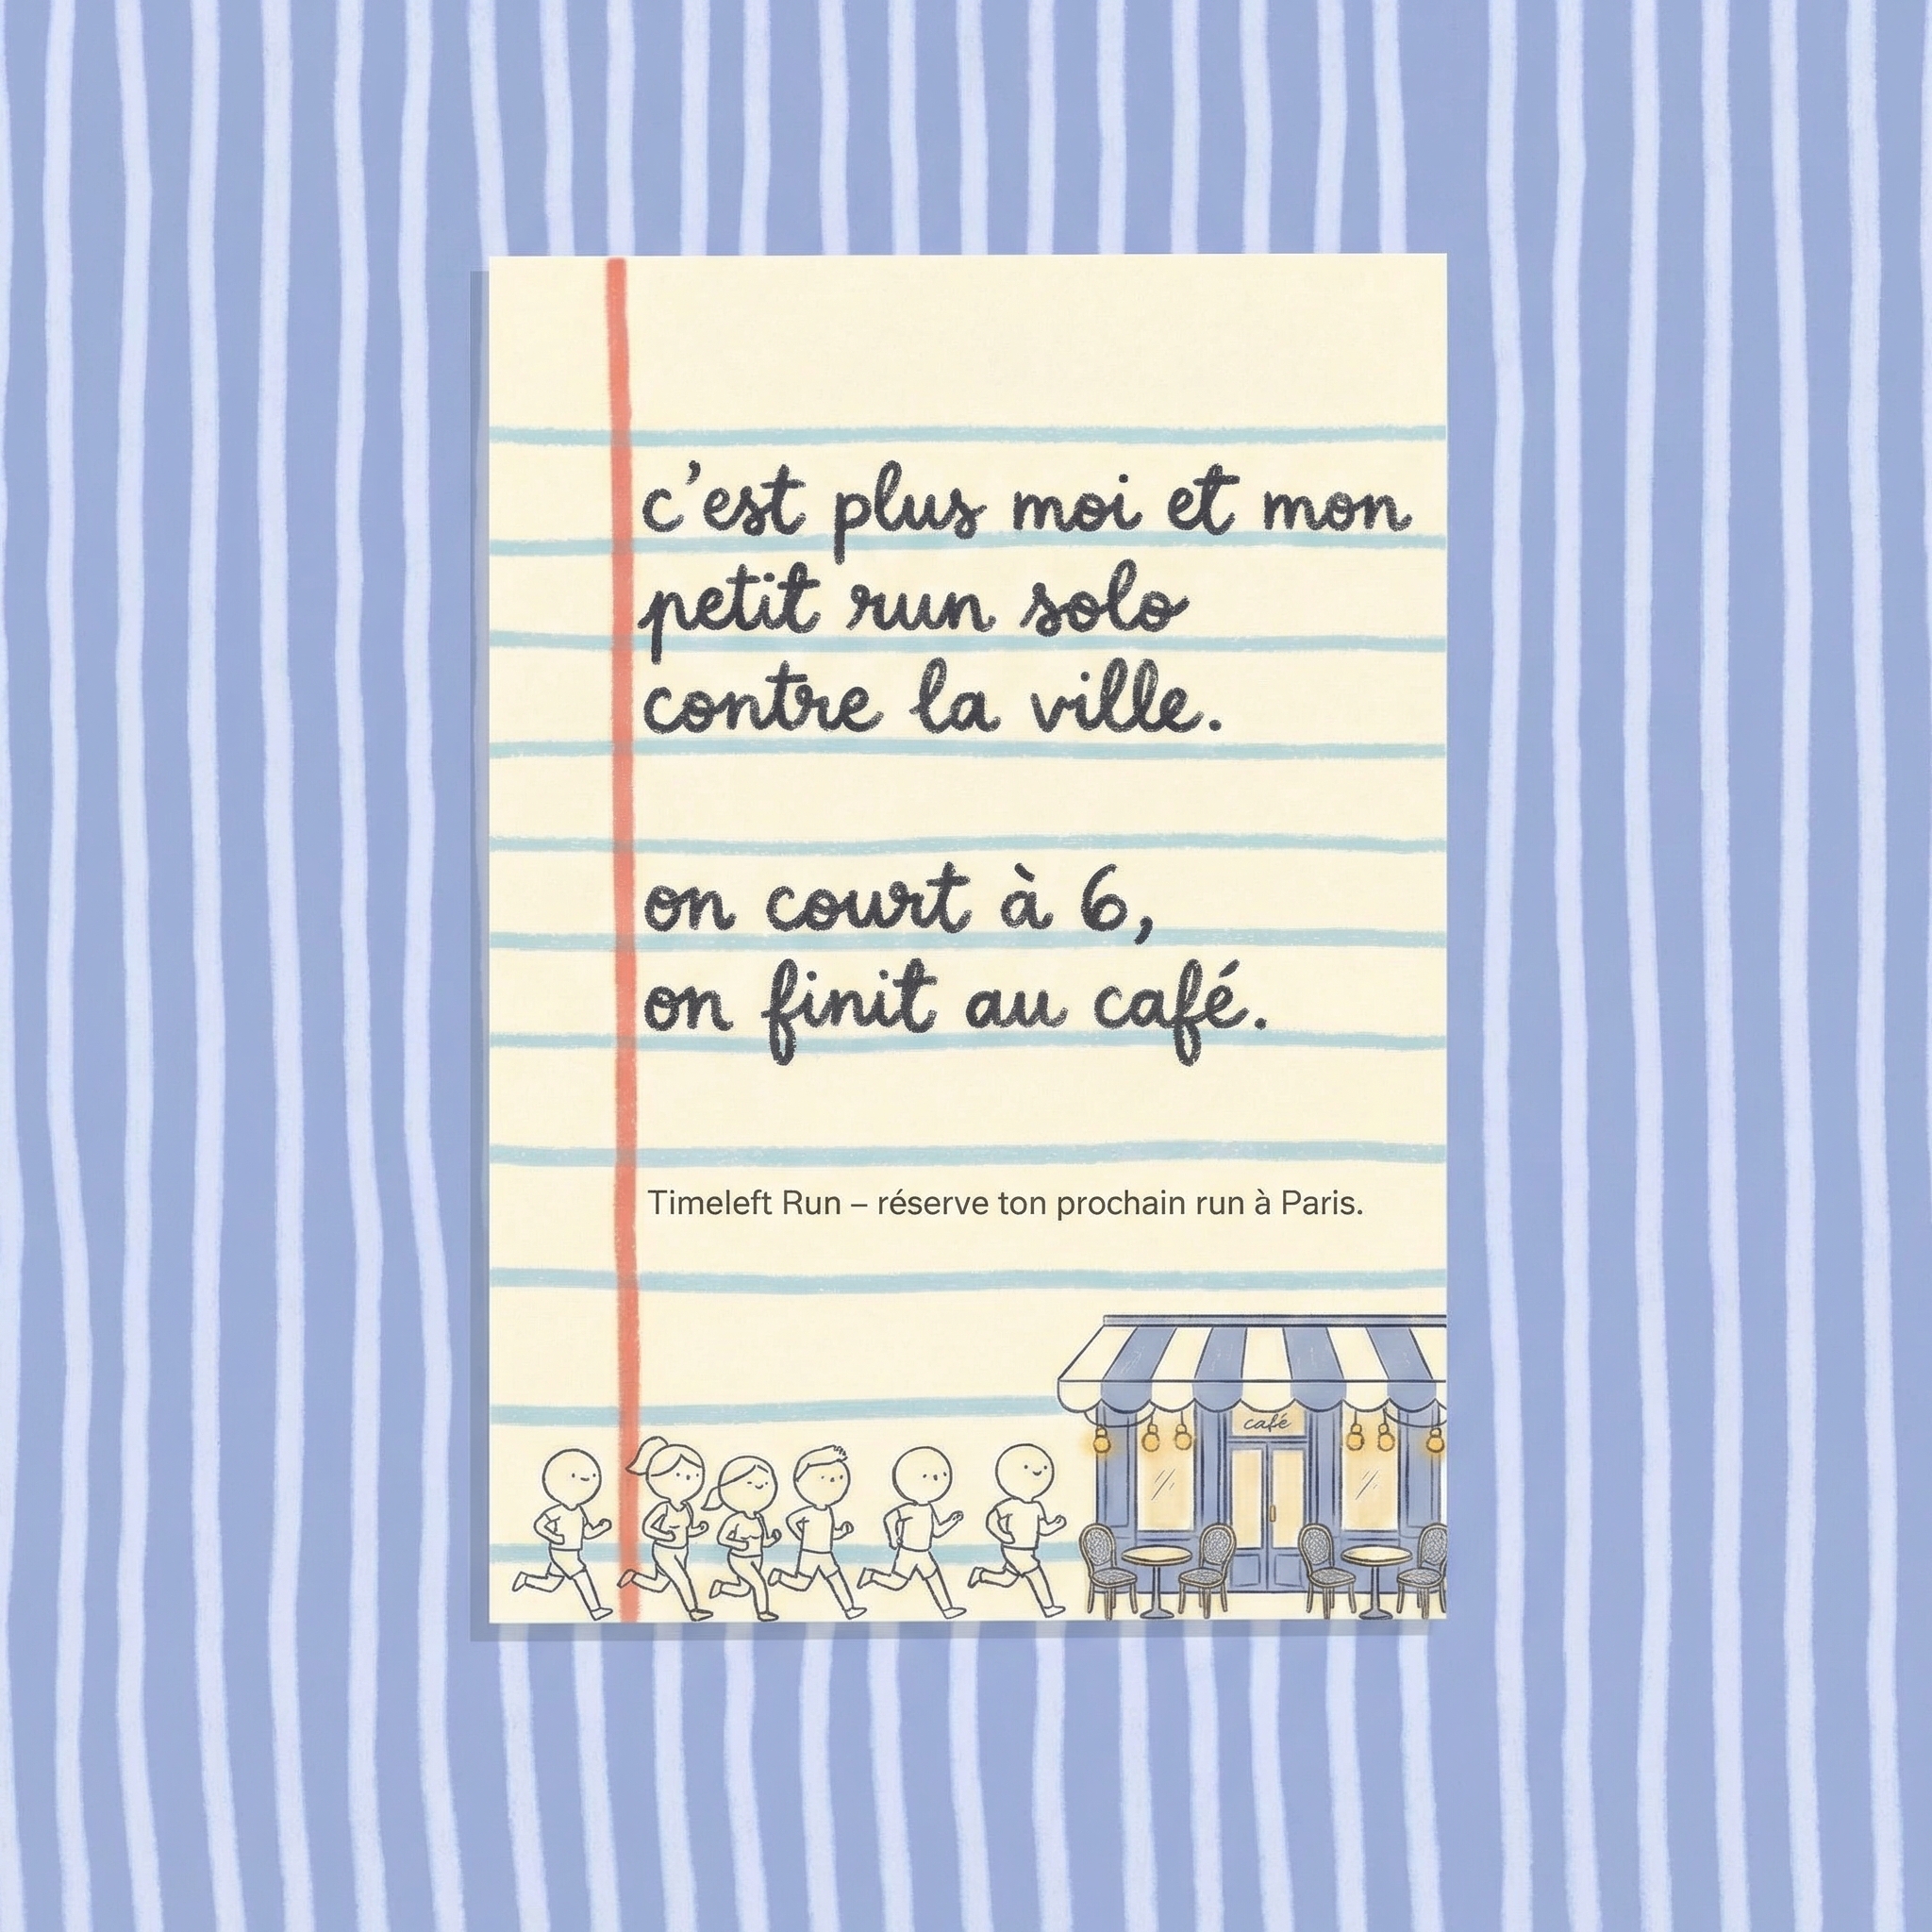 c'est plus moi et mon
petit run solo
contre la ville.
on court à 6,
on finit au café.
Timeleft Run – réserve ton prochain run à Paris.
café